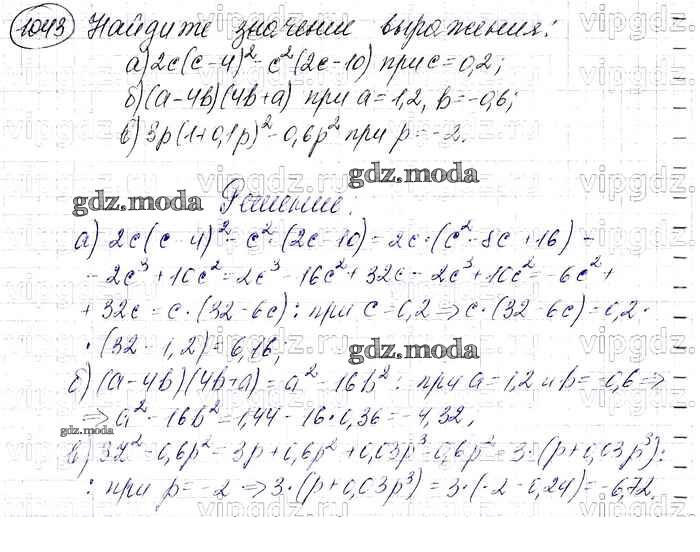 1043 Найдите значение выражения:
а) 2c(c-4)² - c²(2c-10) при c=0,2;
б) (a-4b)(4b+a) при a=1,2, b=-0,6;
в) 3p(1+0,1p)² - 0,6p² при p=-2.
gdz.moda
gdz.moda Решение.
а) 2c(c-4)² - c²·(2c-10) = 2c·(c²-8c+16) -
- 2c³+10c² = 2c³-16c²+32c-2c³+10c² = -6c²+
+32c = c·(32-6c): при c=0,2 ⇒ c·(32-6c) = 0,2·
·(32-1,2) = 6,16;
gdz.moda
б) (a-4b)(4b+a) = a²-16b²: при a=1,2 и b=-0,6 ⇒
⇒ a²-16b² = 1,44-16·0,36 = -4,32;
gdz.moda
в) -0,6p² = 3p+0,6p²+0,03p³-0,6p² = 3·(p+0,03p³):
: при p=-2 ⇒ 3·(p+0,03p³) = 3·(-2-0,24) = -6,72.
vipgdz.ru